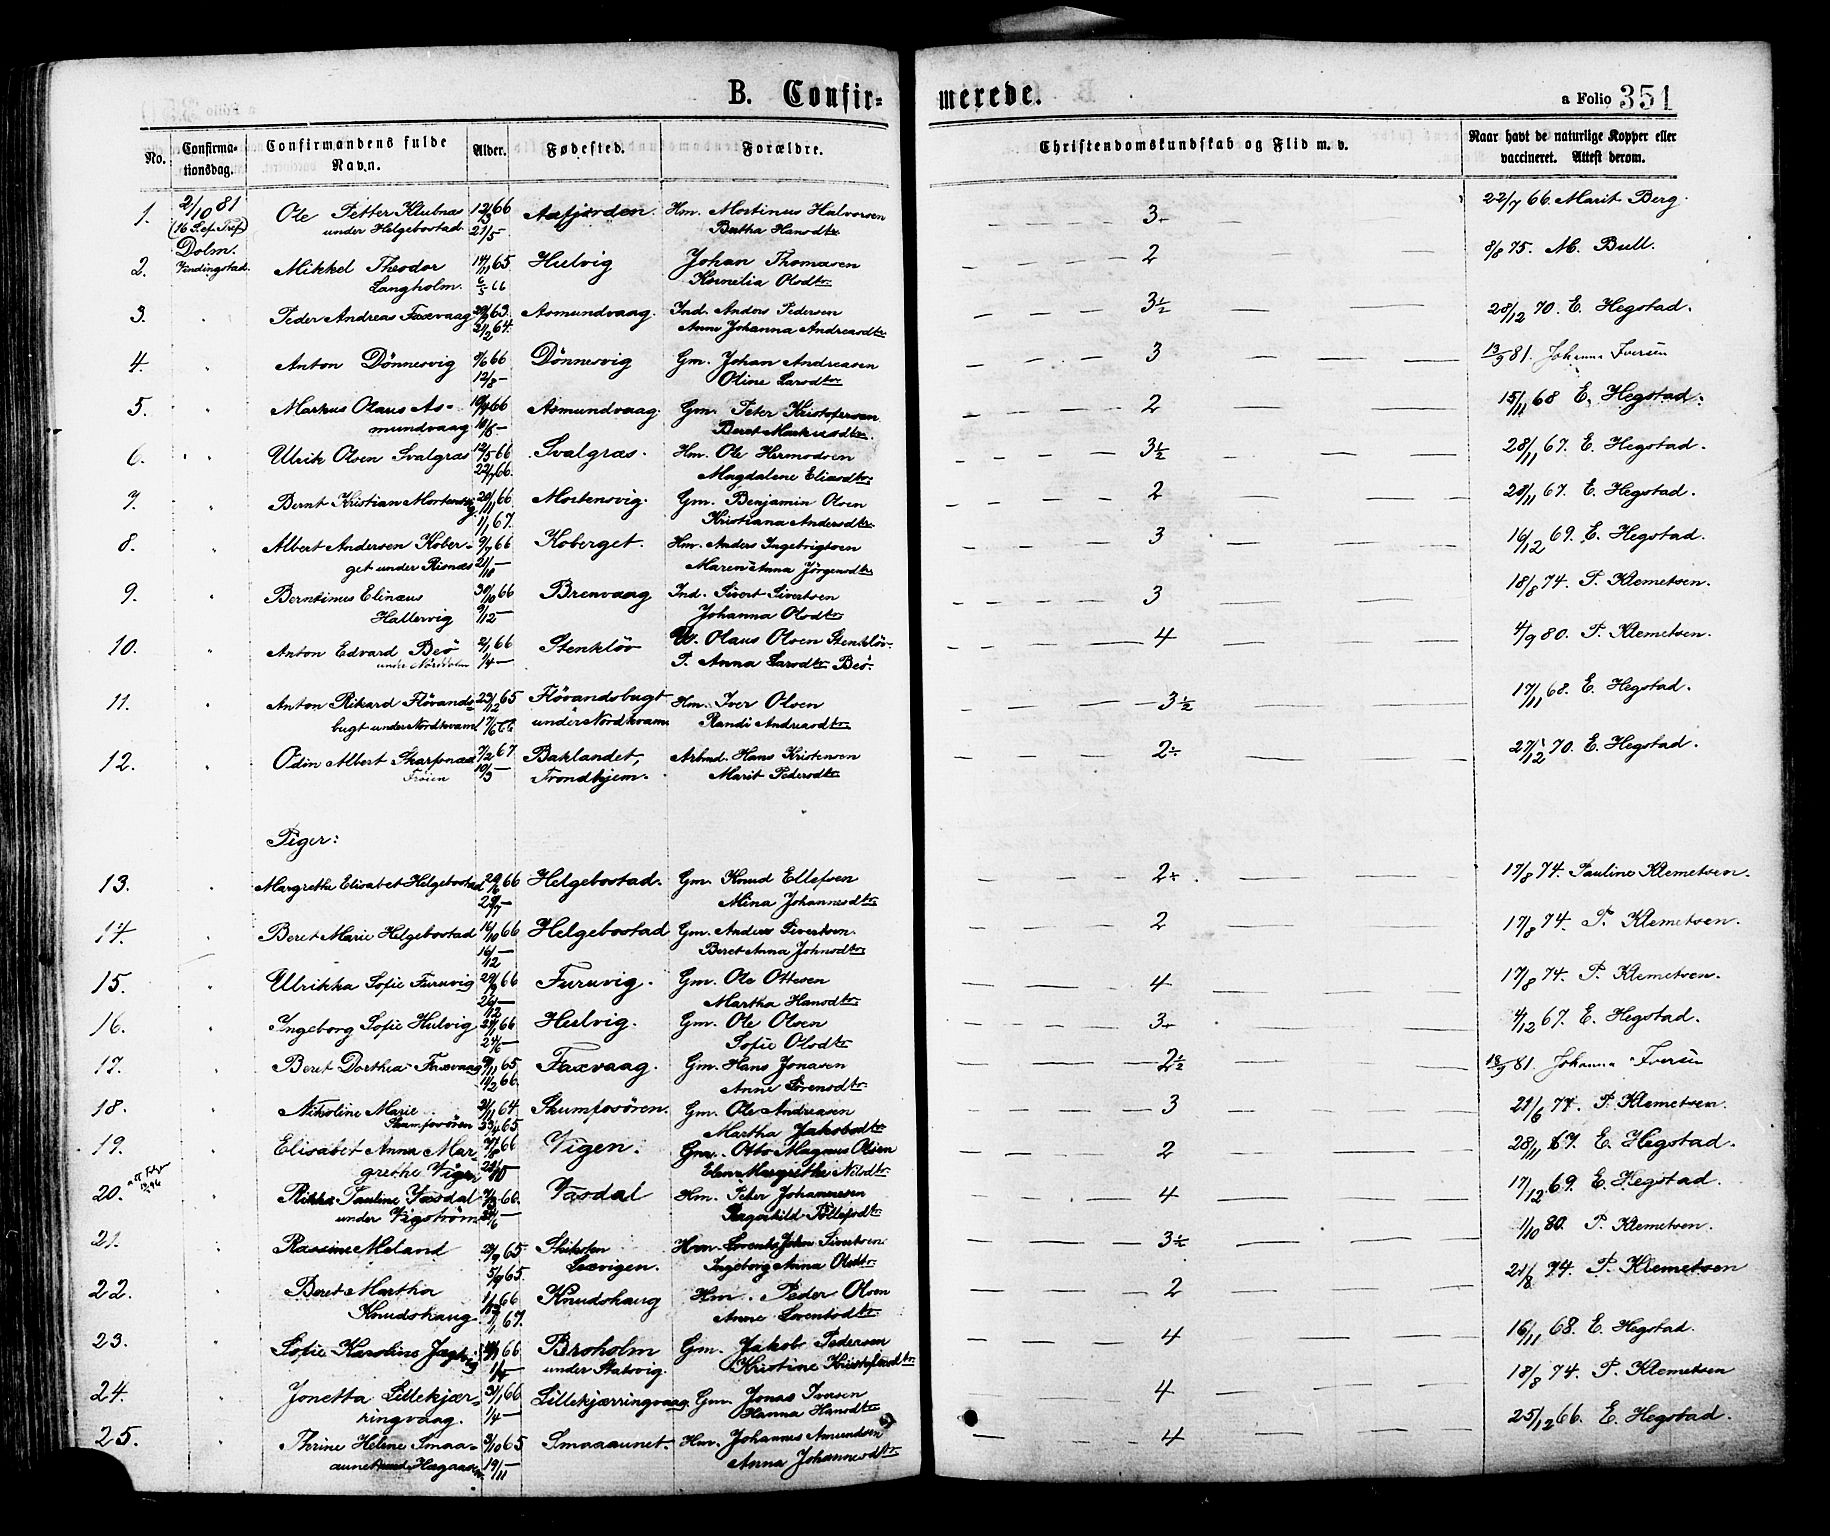 B. Confir-
merede.
a Folio 351
No.
Confirma-
tionsdag.
Confirmandens fulde
Navn.
Alder.
Fødested.
Forældre.
Christendomskundskab og Flid m. v.
Naar havt de naturlige Kopper eller
vaccineret. Attest derom.
1. 2/10 81 Ole Petter Klubnæs 12/3 66 Aafjorden. Hm. Mortinus Halvorsen 3+ 22/7 66. Marit Berg.
under Helgebostad 21/5 — Bertha Hansdtr
Dolm.
2. Mikkel Theodor 14/11 65 Hulvig Johan Thomasen 2 8/8 75. M. Bull.
Langholm. 6/5 66 Kornelia Olsdtr
3. Peder Andreas Faxvaag 63 Asmundvaag. Ind. Anders Pedersen 3½ 28/12 70. E. Hegstad.
21/2 64. Anne Johanna Andreasdtr
4. Anton Dönnesvig 9/6 66 Dönnesvig Gm. Johan Andreasen 3 13/9 81. Johanna Iversen
12/8 — Oline Larsdtr
5. Markus Olaus As- 66 Asmundvaag. Gm. Peter Kristofersen 2 15/11 68 E. Hegstad.
mundvaag Beret Markusdtr.
6. Ulrik Olsen Svalgræs 12/5 66 Svalgræs. Hm. Ole Hermodsen 3½ 28/11 67. E. Hegstad.
22/7 66. Magdalene Eliasdtr
7. Bernt Kristian Mortensvig 20/11 66 Mortensvig. Gm. Benjamin Olsen 2 28/11 67. E. Hegstad.
1/1 67. Kristiana Andersdtr.
8. Albert Andersen Kober- 9/9 66 Koberget. Hm. Anders Ingebrigtsen 3 16/12 69. E. Hegstad.
get under Risnæs 21/10 — Maren Anna Jörgensdtr
9. Berntinus Elinæus 30/10 66 Brenvaag Ind. Sivert Sivertsen 3 18/8 74. P. Klemetsen.
Hallervig 9/12 — Johanna Olsdtr
10. Anton Edvard Beö 2/1 66 Stenklöv Olaus Olsen Stenklöv. 4 4/9 80. P. Klemetsen.
under Nordholm 1/4 — P. Anna Larsdtr Beö.
11. Anton Rikard Flövands- 23/12 65 Flövandsbugt Hm. Iver Olsen 3½ 17/11 68. E. Hegstad.
bugt under Nordkvam 17/6 66 under Nordkvam Randi Andreasdtr
12. Odin Albert Skarpnæs 7/2 67 Baklandet, Arbmd. Hans Kristensen 2÷ 27/12 70. E. Hegstad.
Fröien 10/3 — Trondhjem. Marit Pedersdtr
Piger:
13. Margrethe Elisabet Helgebostad 66 Helgebostad. Gm. Knud Ellefsen 2+ 17/8 74. Pauline Klemetsen.
Mina Johannesdtr
14. Beret Marie Helgebostad 16/10 66 Helgebostad Gm. Anders Sivertsen 2 17/8 74. P. Klemetsen.
16/12 — Beret Anna Johnsdtr
15. Ulrikka Sofie Furuvig 66 Furuvig. Gm. Ole Ottesen 4 17/8 74. P. Klemetsen.
26/12 — Martha Hansdtr
16. Ingeborg Sofie Hulvig 66 Hulvig. Gm. Ole Olsen 3+ 4/12 67. E. Hegstad.
24/6 — Sofie Olsdtr
17. Beret Dorthea Faxvaag 9/11 65 Faxvaag. Gm. Hans Jonasen 2½ 18/9 81. Johanna Iversen
14/2 66. Anne Sörensdtr
18. Nikoline Marie 64 Skumpsören. Gm. Ole Andreasen 3 21/6 77. P. Klemetsen.
Skumpsören 65 Martha Jakobsdtr
19. Elisabet Anna Mar- 66 Vigen. Gm. Otto Magnus Olsen 2 28/11 67. E. Hegstad.
grethe Vigen Elen Margrethe Nilsdtr
20. Rikke Pauline Vasdal 66. Vasdal Hm. Peter Johannesen 4 17/12 69. E. Hegstad.
under Vigström Ragnhild Tollefsdtr
21. Rasine Meland 65. Skiksten Hm. Lorents John Sivertsen 3½ 1/10 80. P. Klemetsen.
5/9 65. Laxvigen. Ingeborg Anna Olsdtr
22. Beret Martha 66 Knudshaug Hm. Peder Olsen 2 21/8 74. P. Klemetsen
Knudshaug 1/1 67. Anne Lorentsdtr
23. Sofie Karoline Jægtvig 66 Broholm Gm. Jakob Pedersen 4 16/11 68. E. Hegstad.
under Statsvig. Kristine Kristofersdtr
24. Jonetta Lillekjær- 31/1 66 Lillekjærringvaag Gm. Jonas Iversen 4 18/8 74. P. Klemetsen
ringvaag. 1/4 — Hanna Hansdtr
25. Therine Helene Smaa- 3/10 65 Smaaaunet. Hm. Johannes Amundsen 4 25/12 66. E. Hegstad.
aunet 19/11 — Anna Johannesdtr